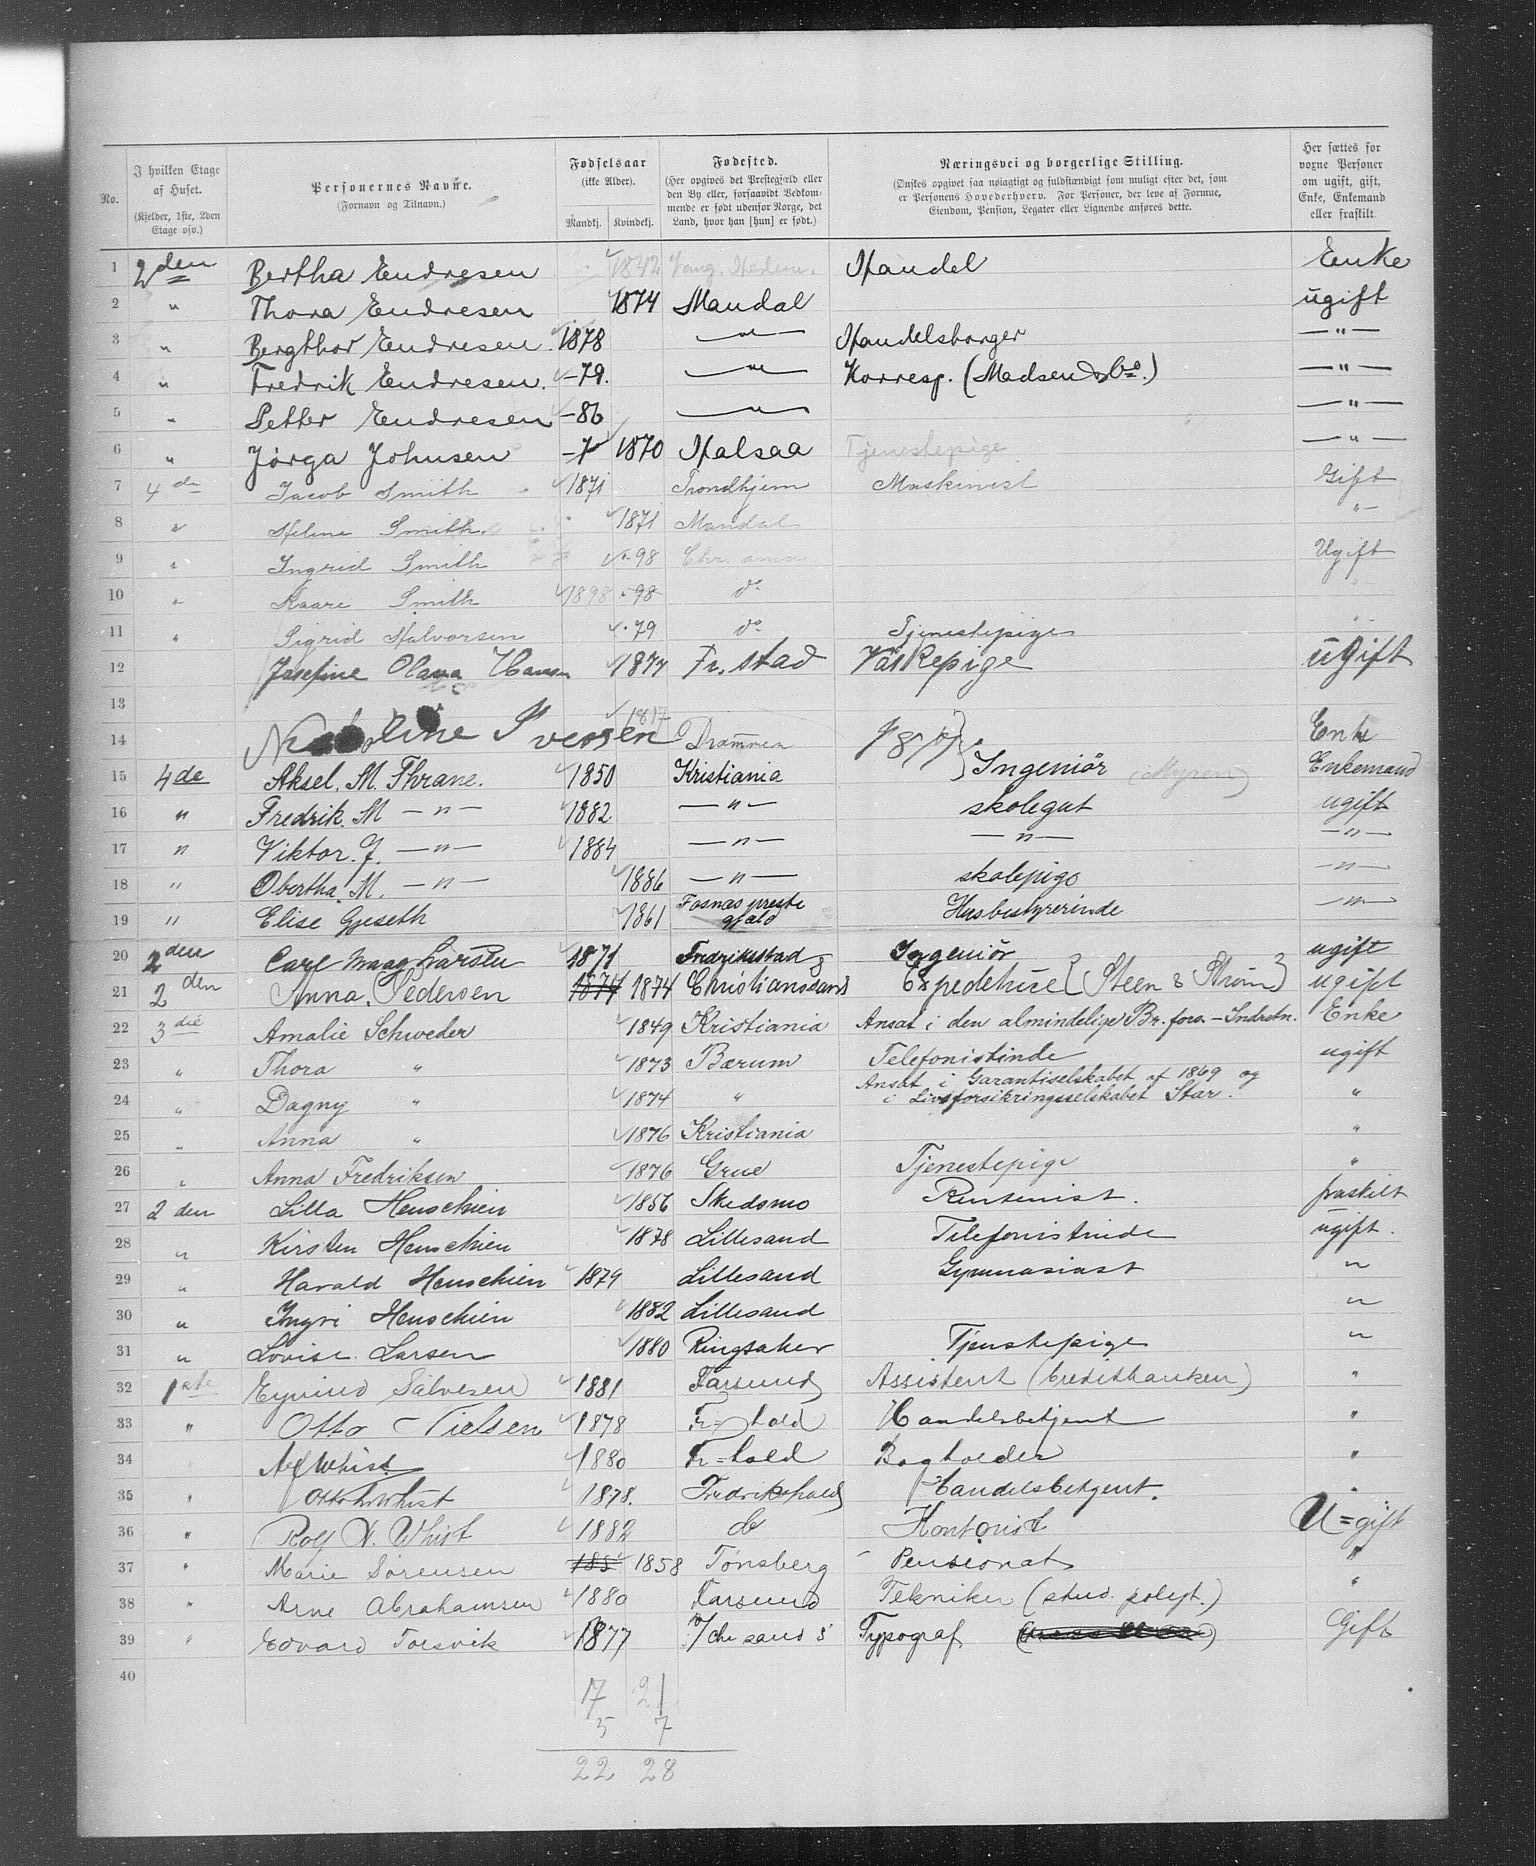 No. | I hvilken Etage af Huset. (Kjelder, 1ste, 2den Etage osv.) | Personernes Navne. (Fornavn og Tilnavn.) | Fødselsaar (ikke Alder). Mandkj. Kvindekj. | Fødested. (Her opgives det Prestegjæld eller den By eller, forsaavidt Vedkommende er født udenfor Norge, det Land, hvor han [hun] er født.) | Næringsvei og borgerlige Stilling. (Ønskes opgivet saa nøiagtigt og fuldstændigt som muligt efter det, som er Personens Hovederhverv. For Personer, der leve af Formue, Eiendom, Pension, Legater eller Lignende anføres dette. | Her sættes for voxne Personer om ugift, gift, Enke, Enkemand eller fraskilt.
1 2den Bertha Endresen 1842 Handel Enke
2 " Thora Endresen 1874 Mandal ugift
3 " Bergthor Endresen 1878 — " — Handelsborger — " —
4 " Fredrik Endresen. -79. — " — Korresp. (Madsen & Co.) — " —
5 " Petter Endresen -86 — " — — " —
6 " Jørga Johnsen 1870 Halsaa Tjenestepige — " —
7 4de Jacob Smith 1871 Trondhjem Maskinist Gift
8 " Helene Smith 1871 Mandal "
9 " Ingrid Smith 98 Chr.ania Ugift
10 " Kaare Smith 1898 98 do "
11 " Sigrid Halvorsen 79 do Tjenestepige "
12 Josefine Olava Hansen 1877 Fr.stad Vaskepige ugift
13
14 Iversen 1817 Drammen Enke
15 4de Aksel. M. Thrane. 1850 Kristiania Ingeniør (Myren) Enkemand
16 " Fredrik. M — " — 1882 — " — skolegut ugift
17 " Viktor. J. — " — 1884 — " — — " — — " —
18 " Obertha. M. — " — 1886 — " — skolepige — " —
19 " Elise Gjeseth 1861 Fosnæs prestegjæld Husbestyrerinde — " —
20 2den Carl Maag Larsen 1871 Fredrikstad Ingeniør ugift
21 2den Anna Pedersen 1874 1874 Christianssand Expeditrice (Steen & Strøm) ugift
22 3die Amalie Schweder 1849 Kristiania Ansat i den almindelige Br.fors.-Indretn. Enke
23 " Thora " 1873 Bærum Telefonistinde ugift
24 " Dagny " 1874 " Ansat i Garantiselskabet af 1869 og i Livsforsikringsselskabet Star. "
25 " Anna " 1876 Kristiania "
26 " Anna Fredriksen 1876 Grue Tjenestepige "
27 2den Lilla Henschien 1856 Skedsmo Rentenist. fraskilt
28 " Kirsten Henschien 1878 Lillesand Telefonistinde ugift.
29 " Harald Henschien 1879 Lillesand Gymnasiast "
30 " Yngvi Henschien 1882 Lillesand "
31 " Lovise Larsen 1880 Ringsaker Tjenstepige "
32 1ste Eyvind Salvesen 1881 Farsund Assistent (Creditbanken) "
33 " Otto Nielsen 1878 Fr=hald Handelsbetjent "
34 Whist 1880 Fr=hald Bogholder "
35 " Whist 1878. Fredrikshald Handelsbetjent. "
36 " Rolf N. Whist 1882 do Kontorist U=gift
37 " Marie Sørensen 1858 Tønsberg Pensionat "
38 " Arne Abrahamsen 1880 Farsund Tekniker (stud. polyt.) "
39 " Edvard Torsvik 1877 Typograf Gift
40
17 21
5 7
22 28